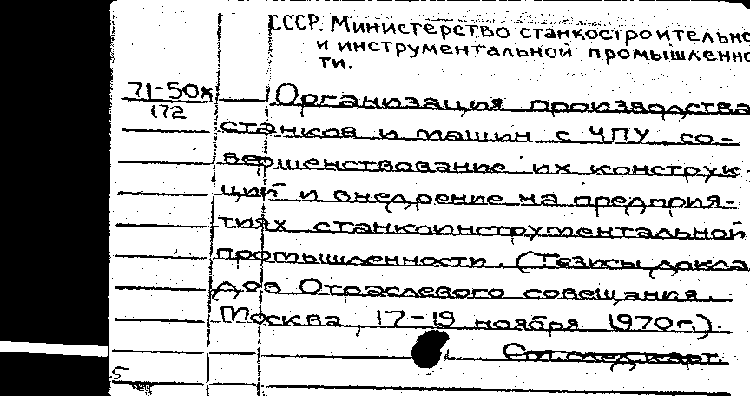 СССР. Министерство станкостроительно
и инструментальной промышленно
ти.
71-50к
172
Организация производства
станков и машин с ЧПУ, со-
вершенствование их конструк-
ций и внедрение на предприя-
тиях станкоинструментальной
промышленности. (Тезисы докла
дов Отраслевого совещания.
Москва, 17-19 ноября 1970г.).
См. след. карт.
5